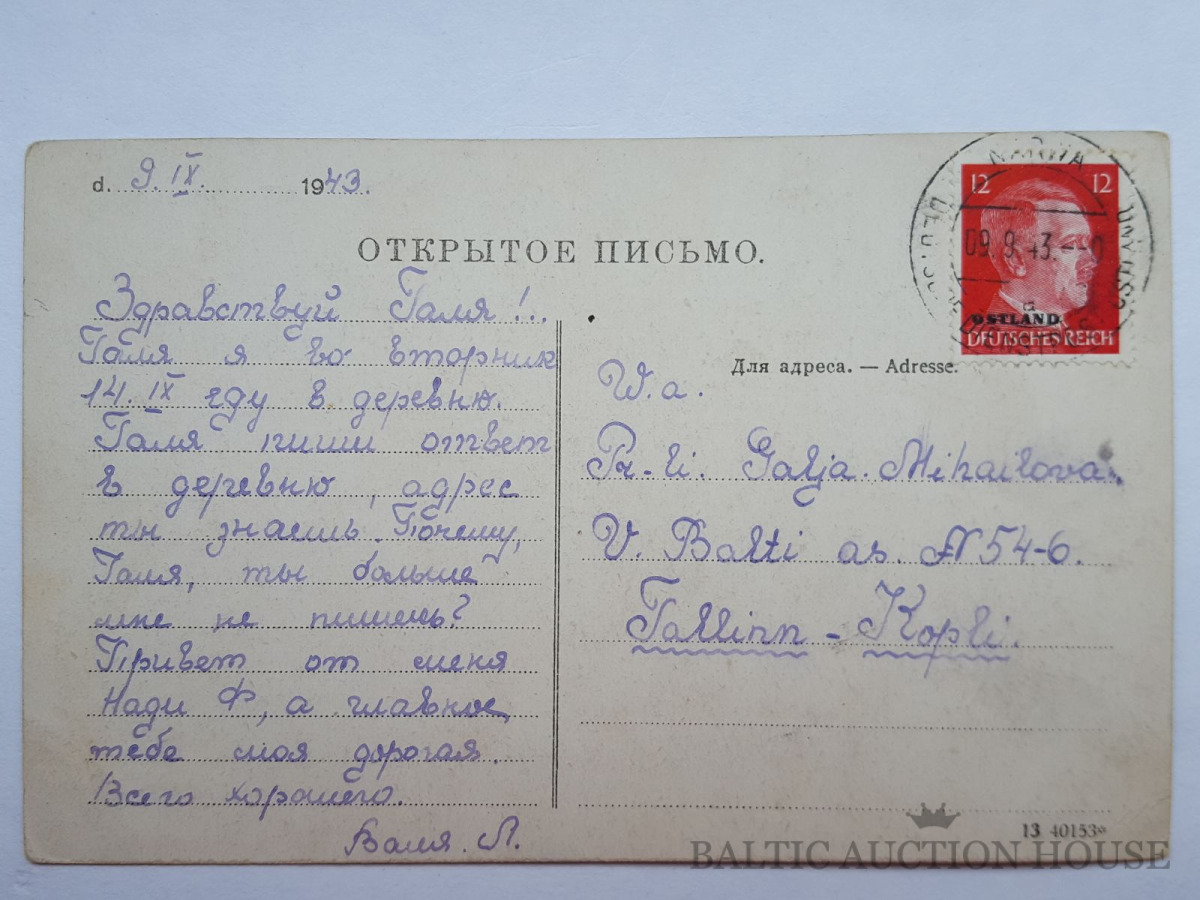 d. 9. IX. 1943.
ОТКРЫТОЕ ПИСЬМО.
Здравствуй Галя!..
Галя я во вторник
14. IX еду в деревню.
Галя пиши ответ
в деревню, адрес
ты знаешь. Почему,
Галя, ты больше
мне не пишешь?
Привет от меня
Нади Ф, а главное,
тебе моя дорогая.
Всего хорошего.
Валя. Л.
12 12
NARWA
09.9.43.
OSTLAND
DEUTSCHES REICH
Для адреса. — Adresse.
W. a.
Pr-li. Galja. Mihailova.
V. Balti as. N 54-6.
Tallinn - Kopli.
13 40153
BALTIC AUCTION HOUSE